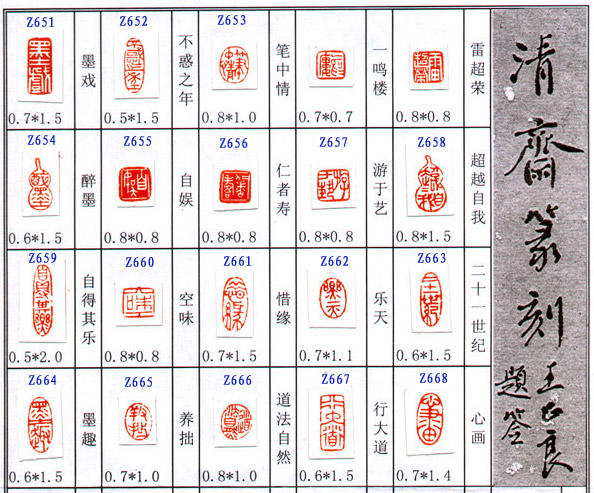 Z651
墨戏
0.7*1.5
Z652
不惑之年
0.5*1.5
Z653
笔中情
0.8*1.0
一鸣楼
0.7*0.7
雷超荣
0.8*0.8
Z654
醉墨
0.6*1.5
Z655
自娱
0.8*0.8
Z656
仁者寿
0.8*0.8
Z657
游于艺
0.8*0.8
Z658
超越自我
0.8*1.5
Z659
自得其乐
0.5*2.0
Z660
空味
0.8*0.8
Z661
惜缘
0.7*1.5
Z662
乐天
0.7*1.1
Z663
二十一世纪
0.6*1.5
Z664
墨趣
0.6*1.5
Z665
养拙
0.7*1.0
Z666
道法自然
0.8*1.0
Z667
行大道
0.6*1.5
Z668
心画
0.7*1.4
清齋篆刻
王良
題签